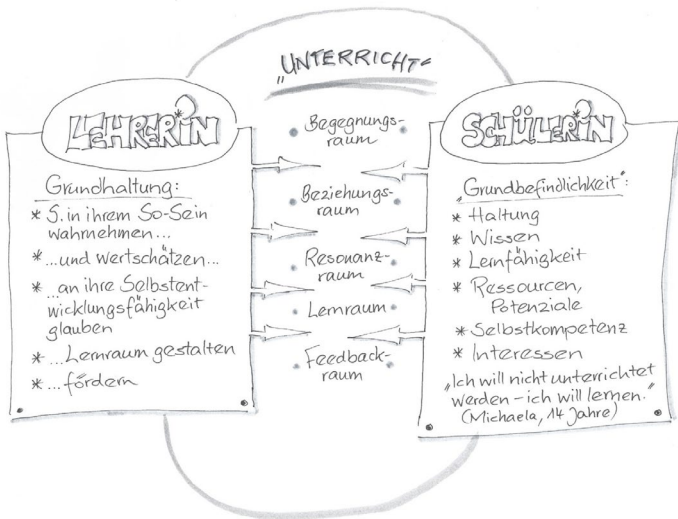 „UNTERRICHT“
LEHRER*iN
Grundhaltung:
* S. in ihrem So-Sein
wahrnehmen...
* ...und wertschätzen...
* ...an ihre Selbstent-
wicklungsfähigkeit
glauben
* ...Lernraum gestalten
* ...fördern
• Begegnungs- •
raum
• Beziehungs- •
raum
• Resonanz- •
raum
• Lernraum •
• Feedback- •
raum
SCHÜLER*iN
„Grundbefindlichkeit“:
* Haltung
* Wissen
* Lernfähigkeit
* Ressourcen,
Potenziale
* Selbstkompetenz
* Interessen
„Ich will nicht unterrichtet
werden – ich will lernen.“
(Michaela, 14 Jahre)